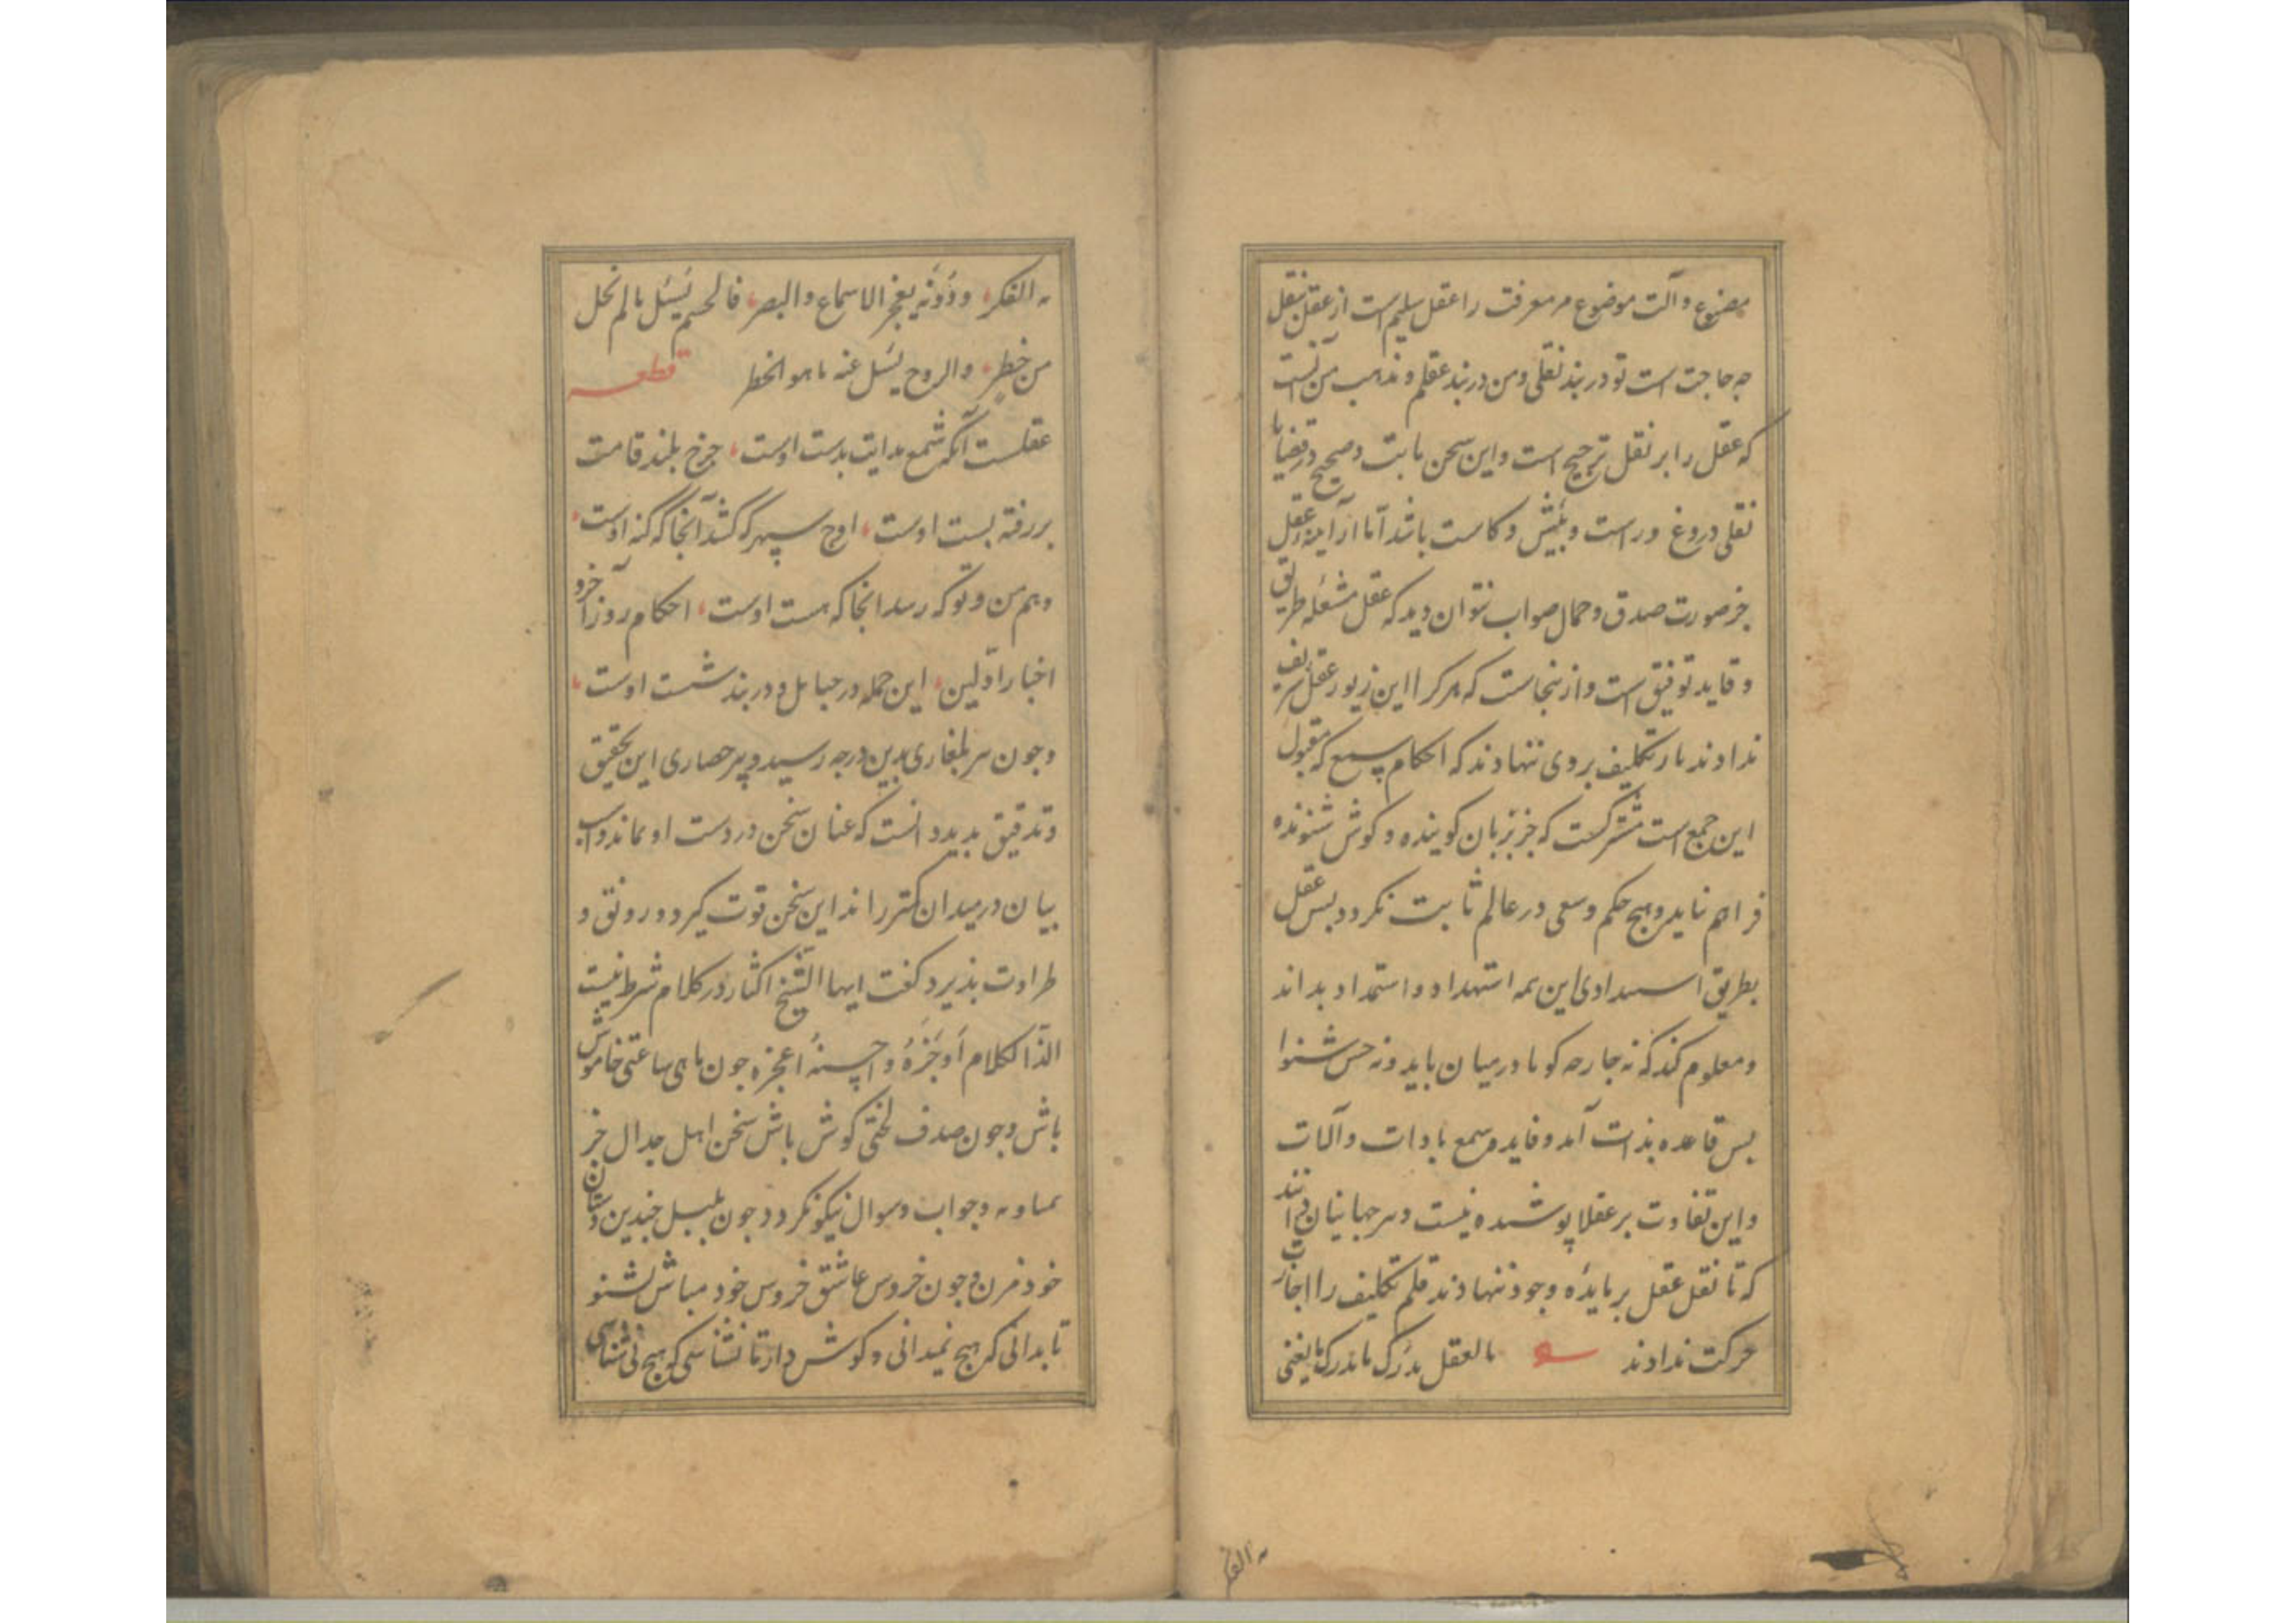 مصنوع و آلت موضوع مر معرفت را عقل سلیم است از عقل بنقل
جه حاجت است تو در بند نقلی و من در بند عقلم و مذهب من آنست
که عقل را بر نقل ترجیح است و این سخن ثابت و صحیح در قضایا
نقلی دروغ و راست و بیش و کاست باشد اما از آینه عقل
جز صورت صدق و جمال صواب نتوان دید که عقل مشعله طریق
و قاید توفیق است و از ینجاست که هر کرا این زیور عقل شریف
ندادند بار تکلیف بر وی ننهادند که احکام سمع که مقبول
این جمع است مشترکست که جز بزبان کوینده و کوش شنونده
فراهم نیاید و هیج حکم وسعی در عالم ثابت نکردد بس عقل
بطریق استبدادی این همه استهداد و استمداد بداند
و معلوم کند که نه جارحه کویا در میان باید و نه حس شنوا
بس قاعده بذات آمد و فایده سمع بادات و آلات
و این تفاوت بر عقلا پوشیده نیست و سر جهانیان دانند
که تا نقل عقل بر مایدٔه وجود ننهادند قلم تکلیف را اجازت
حرکت ندادند بالعقل یدرک ما یدرک بالغنی
به الفکر
به الفکر و دونه یعجز الاسماع والبصر فالجسم یسئل بالم نحل
من خطر والروح یسئل عنه ما هو الخطر قطعه
عقلست آنکه شمع هدایت بدست اوست جرخ بلند قامت
بر رفته بست اوست اوج سپهر که کشد آنجا که کنه اوست
وهم من و تو که رسد انجا که هست اوست احکام روز آخر و
اخبار اولین این جمله در حبایل و در بند شست اوست
و جون سر بلغاری بدین درجه رسید و پیر حصاری این تحقیق
و تدقیق بدید دانست که عنان سخن در دست او بماند و اسب
بیان در میدان کتر راند این سخن قوت کیرد و رونق و
طراوت بذیرد کفت ایها الشیخ اکثار در کلام شرط نیست
الذ الکلام اوجزه و احسنه اعجزه جون ماهی ساعتی خاموش
باش و جون صدف لختی کوش باش سخن اهل جدال جز
بمناوبه و جواب و سوال نیکو نکردد جون بلبل جندین دستان
خود مزن و جون خروس عاشق خروس خود مباش بشنو
تا بدانی که هیج نمیدانی و کوش دار تا بشناسی که هیج نمی شناسی